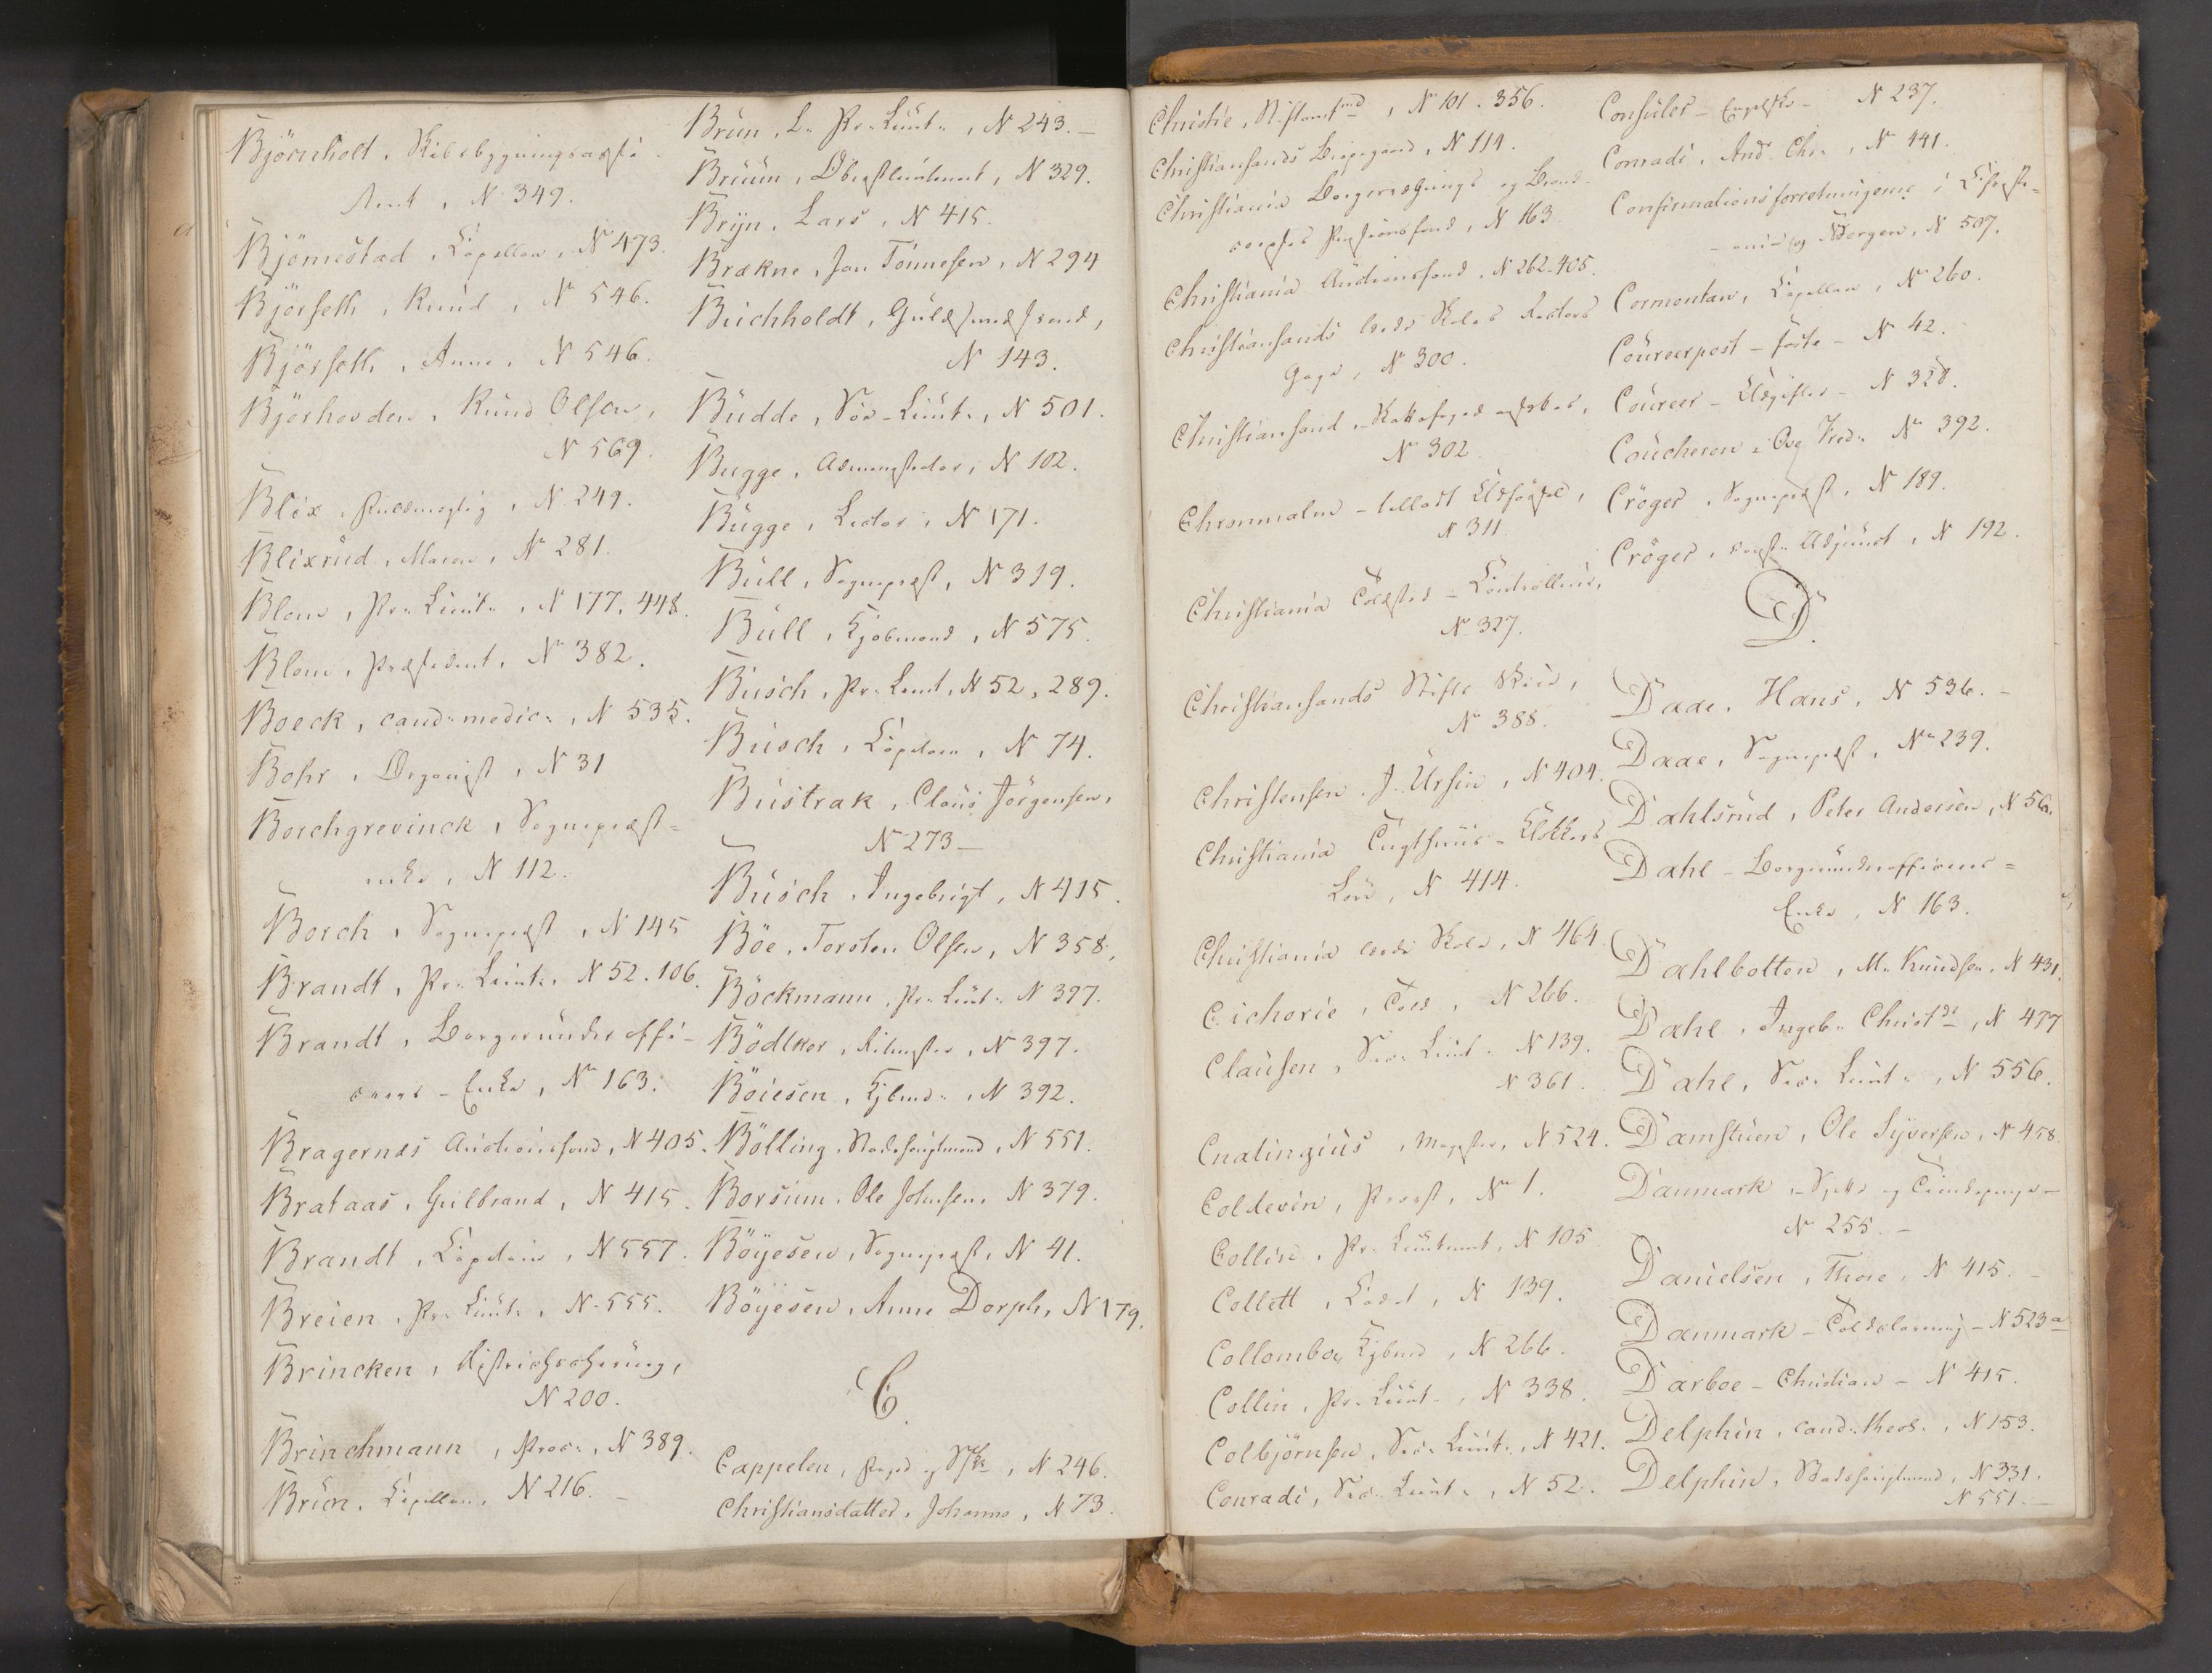 Björnholt, Skibsbygningsassi-
stent, N. 349.
Björnestad, Capellan, No 473.
Björseth, Knud, No 546.
Björseth, Anne, N 546.
Björhovden, Knud Olsen,
N 569.
Blix, Fuldmægtig, N. 249.
Blixrud, Maren, No 281.
Blom, Pr. Lieut., N 177, 448.
Blom, Præsident, No 382.
Boeck, cand. medic., N 535.
Bohr, Organist, N 31
Borchgrevinck, Sognepræst-
enke, N 112.
Borch, Sognepræst, N 145
Brandt, Pr. Lieut., N 52. 106.
Brandt, Borgerunderoffi-
ceers-Enke, No 163.
Bragernæs Auctionsfond, N 405.
Brataas, Gulbrand, N 415.
Brandt, Capitain, N 557.
Breien, Pr. Lieut., N. 555.
Brincken,
N 200.
Brinchmann, Proc., N 389.
Brun, Capellan, N 216.
Brun, L. Pr. Lieut., N 243.
Bruun, Oberstlieutenant, N 329.
Bryn, Lars, N 415.
Brækne, Jon Tönnesen, N 294
Buchholdt, Guldsmedsvend,
N 143.
Budde, Sec-Lieut., N 501.
Bugge, N 102.
Bugge, Lector, N 171.
Bull, Sognepræst, N 319.
Bull, Kjøbmand, N 575.
Busch, Pr. Lieut, N 52, 289.
Busch, Capitain, N 74.
Bustrak, Claus Jörgensen,
No 273
Busch, Ingebrigt, N 415.
Böe, Torsten Olsen, N 358.
Böckmann, Pr. Lieut. N 397.
Bödtker, Ritmester, N 397.
Böiesen, Kjbmd., N 392.
Bölling, Stadshauptmand, N 551.
Borsum, Ole Johnsen, N 379.
Böyesen, Sognepræst, N 41.
Böyesen, Anne Dorph, N 179.
C.
Cappelen, Foged og N 246.
Christiansdatter, Johanne, N 73.
Christie, Stiftamtmd, No 101. 356.
Christiansands Bispegaard, N 114.
Christiania Borgervæbnings og Brand-
corpses Pensionsfond, N 163.
Christiania Auctionsfond, N 262. 405.
Christiansands lærde Skoles Rectors
Gage, N 300.
Christiansand,
No 302
Chromnalm - tilladt Udförsel,
N 311.
Christiania Toldsted - Controlleur,
No 327.
Christiansands Stifts
No 388.
Christensen. J. Ursin, N 404.
Christiania Tugthuus - Klokkers
Lön, N 414.
Christiania lærde Skole, N 464.
Cichorie, Told, N 266.
Clausen, Sec. Lieut. N 139.
N 361.
Cnatingius, Magister, N 524.
Coldevin, Provst, No 1.
Collin, Pr. Lieutenant, N 105
Collett, Cadet, N 139.
Collombo, Kjbmd, N 266.
Collin, Pr. Lieut., No 338.
Colbjörnsen, Sec. Lieut., N 421.
Conradi, Sec. Lieut., N 52.
Consuler - Engelske - N 237.
Conradi, And. Chr., No 441.
Confirmationsforretningerne i Christi-
ania og Bergen, N 507.
Cormontan, Capellan, No 260.
Coureerpost - förte - N 42.
Coureer - Udgifter - N 328.
Coucheron, Ove Fred. No 392.
Cröger, Sognepræst, N 189.
Cröger, Adjunct, N 192.
D.
Daae, Hans, N 536.
Daae, Sognepræst, No 239.
Dahlsrud, Peter Andersen, N 56.
Dahl - Borgerunderofficeers-
Enke, N 163.
Dahlbotten, M. Knudsen, N 431.
Dahl, Ingeb. Christde, N 477
Dahl, Sec. Lieut., N 556.
Damstuen, Ole Syversen, No 458.
Danmark,
No 255.
Danielsen, Thore, N 415.
Danmark - N 523 a
Darboe - Christian - N 415.
Delphin, cand. theol., N 153.
Delphin, Stadshauptmand, N 331.
N 551.